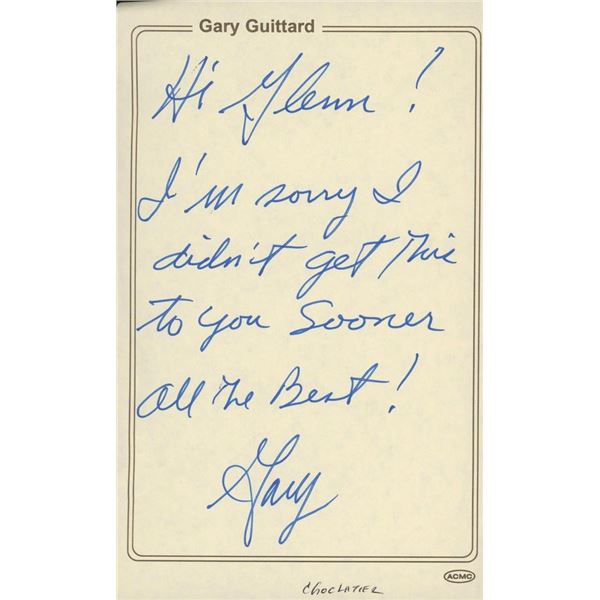 Gary Guittard
Hi Glenn!
I'm sorry I
didn't get this
to you sooner
All the Best!
Gary
ACMC
CHOCLATIER